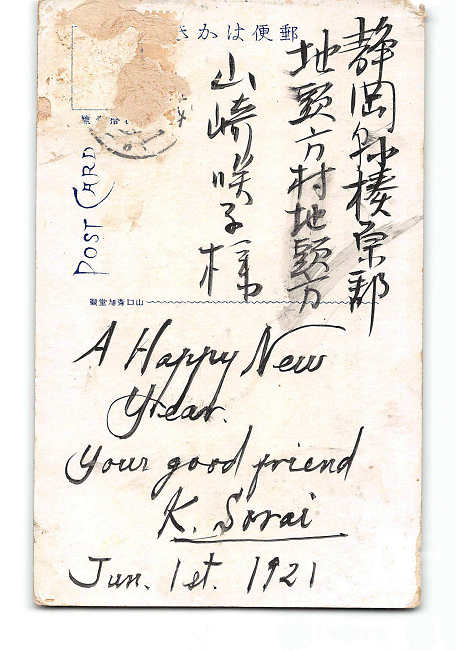 郵便はかき
静岡縣榛原郡
地頭方村地頭方
山崎咲子様
POST CARD
A Happy New
Year.
Your good friend
K. Sorai
Jan. 1st. 1921